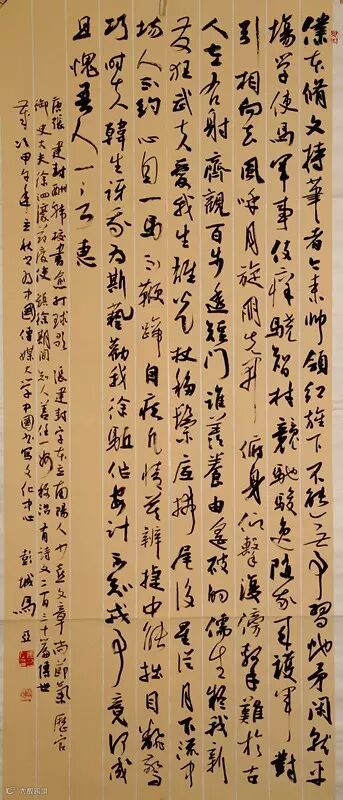 僕本脩文持筆者今来帅領紅旌下不能无事習蛇矛闲就平
場学使馬軍事伎痒驍智材競馳駿逸随我来護軍对
引相向去風呼月旋朋先開俯身仰擊復傍擊難於古
人左右射齊觀百步透短门誰羡養由遥破的儒生疑我新
發狂武夫愛我生雄光杖移鬃底拂尾後星從月下流中
場人々不約心自一馬々不鞭蹄自疾凡情莫辨捷中能拙目翻驚
巧时失韓生讶我为斯藝勸我徐驅作安計不知戎事竟何成
且愧吾人一言惠
唐張建封酬韓校書愈打球歌 張建封字本立南陽人少喜文章尚節氣歷官
御史大夫徐泗濠节度使鎮徐期间知人善任一州称治有诗文二百三十篇傳世
岁次甲午年立秋日於中國傳媒大学中國书写文化中心
彭城馬亞